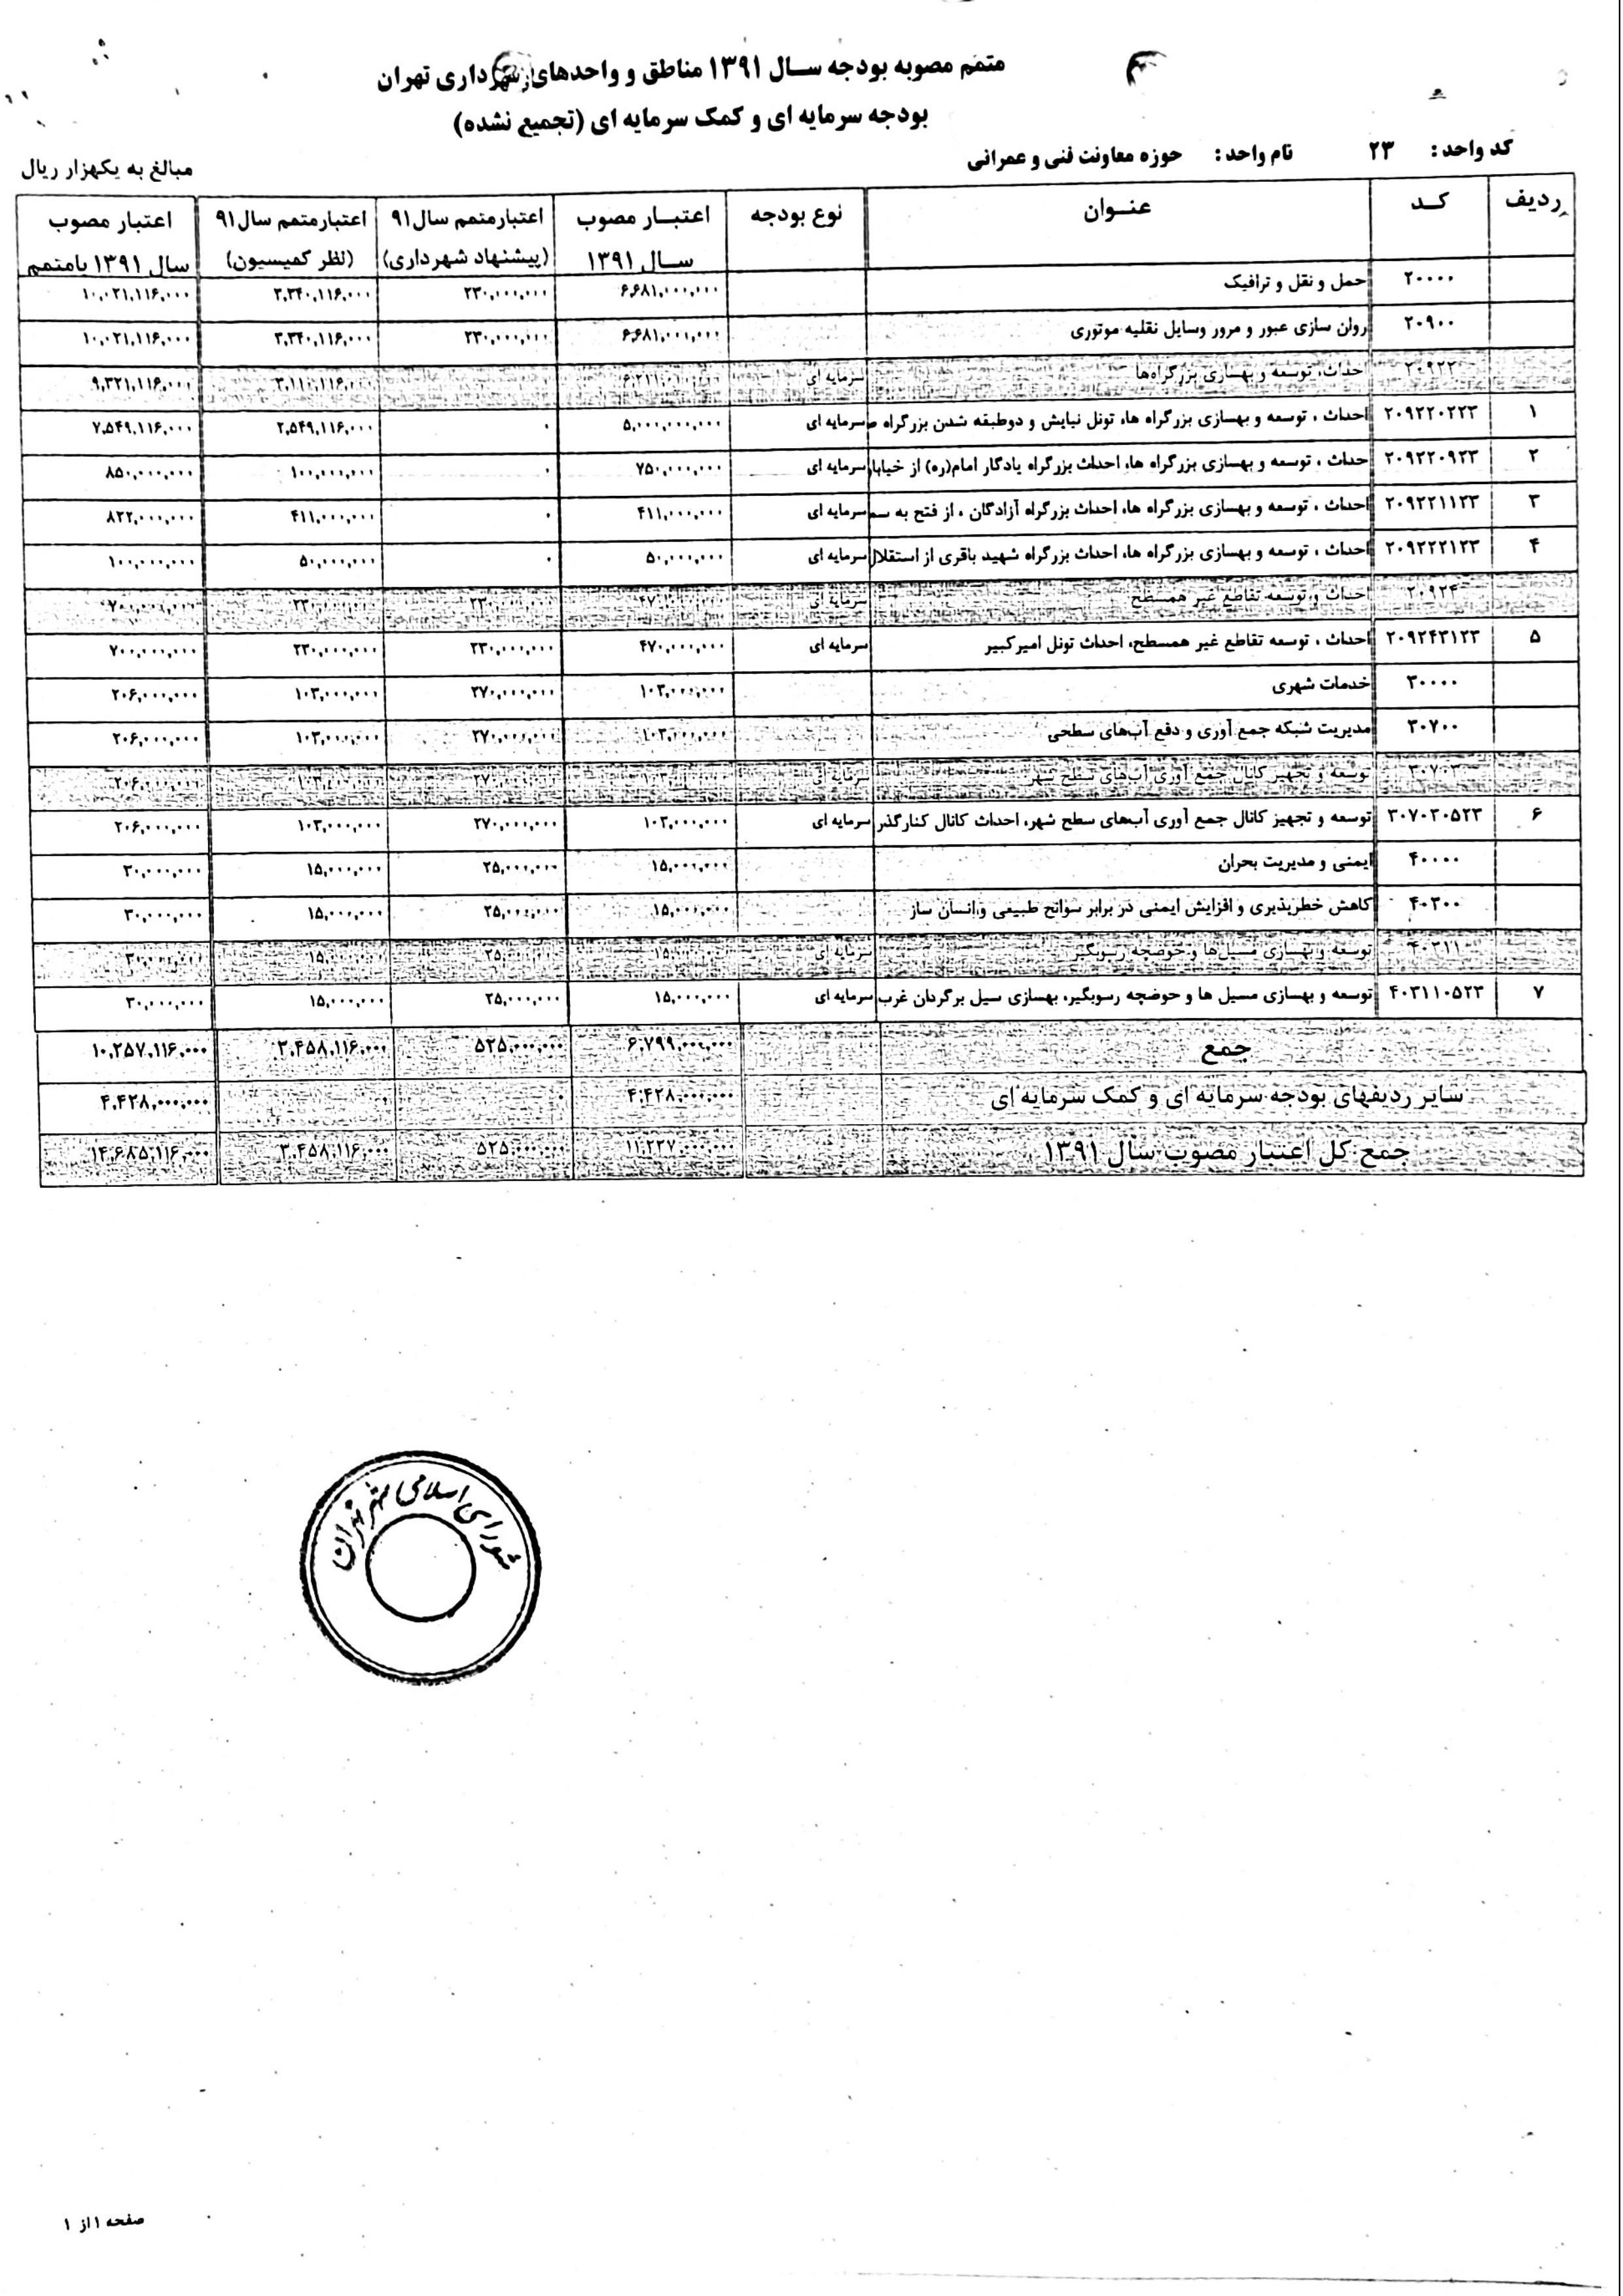 متمم مصوبه بودجه سال ۱۳۹۱ مناطق و واحدهای شهرداری تهران
بودجه سرمایه ای و کمک سرمایه ای (تجمیع نشده)
کد واحد: ۲۳ نام واحد: حوزه معاونت فنی و عمرانی
مبالغ به یکهزار ریال
ردیف کد عنوان نوع بودجه اعتبار مصوب سال ۱۳۹۱ اعتبارمتمم سال ۹۱ (پیشنهاد شهرداری) اعتبارمتمم سال ۹۱ (نظر کمیسیون) اعتبار مصوب سال ۱۳۹۱ بامتمم
۲۰۰۰۰ حمل و نقل و ترافیک ۶,۶۸۱,۰۰۰,۰۰۰ ۲۳۰,۰۰۰,۰۰۰ ۳,۳۴۰,۱۱۶,۰۰۰ ۱۰,۰۲۱,۱۱۶,۰۰۰
۲۰۹۰۰ روان سازی عبور و مرور وسایل نقلیه موتوری ۶,۶۸۱,۰۰۰,۰۰۰ ۲۳۰,۰۰۰,۰۰۰ ۳,۳۴۰,۱۱۶,۰۰۰ ۱۰,۰۲۱,۱۱۶,۰۰۰
۲۰۹۲۲ احداث، توسعه و بهسازی بزرگراه‌ها سرمایه ای ۶,۲۱۱,۰۰۰,۰۰۰ ۳,۱۱۰,۱۱۶,۰۰۰ ۹,۳۲۱,۱۱۶,۰۰۰
۱ ۲۰۹۲۲۰۲۲۳ احداث ، توسعه و بهسازی بزرگراه ها، تونل نیایش و دوطبقه شدن بزرگراه ص سرمایه ای ۵,۰۰۰,۰۰۰,۰۰۰ ۰ ۲,۵۴۹,۱۱۶,۰۰۰ ۷,۵۴۹,۱۱۶,۰۰۰
۲ ۲۰۹۲۲۰۹۲۳ احداث ، توسعه و بهسازی بزرگراه ها، احداث بزرگراه یادگار امام(ره) از خیابا سرمایه ای ۷۵۰,۰۰۰,۰۰۰ ۰ ۱۰۰,۰۰۰,۰۰۰ ۸۵۰,۰۰۰,۰۰۰
۳ ۲۰۹۲۲۱۱۲۳ احداث ، توسعه و بهسازی بزرگراه ها، احداث بزرگراه آزادگان ، از فتح به سم سرمایه ای ۴۱۱,۰۰۰,۰۰۰ ۰ ۴۱۱,۰۰۰,۰۰۰ ۸۲۲,۰۰۰,۰۰۰
۴ ۲۰۹۲۲۲۱۲۳ احداث ، توسعه و بهسازی بزرگراه ها، احداث بزرگراه شهید باقری از استقلال سرمایه ای ۵۰,۰۰۰,۰۰۰ ۰ ۵۰,۰۰۰,۰۰۰ ۱۰۰,۰۰۰,۰۰۰
۲۰۹۲۴ احداث و توسعه تقاطع غیر همسطح سرمایه ای ۴۷۰,۰۰۰,۰۰۰ ۲۳۰,۰۰۰,۰۰۰ ۲۳۰,۰۰۰,۰۰۰ ۷۰۰,۰۰۰,۰۰۰
۵ ۲۰۹۲۴۳۱۲۳ احداث ، توسعه تقاطع غیر همسطح، احداث تونل امیرکبیر سرمایه ای ۴۷۰,۰۰۰,۰۰۰ ۲۳۰,۰۰۰,۰۰۰ ۲۳۰,۰۰۰,۰۰۰ ۷۰۰,۰۰۰,۰۰۰
۳۰۰۰۰ خدمات شهری ۱۰۳,۰۰۰,۰۰۰ ۲۷۰,۰۰۰,۰۰۰ ۱۰۳,۰۰۰,۰۰۰ ۲۰۶,۰۰۰,۰۰۰
۳۰۷۰۰ مدیریت شبکه جمع آوری و دفع آب‌های سطحی ۱۰۳,۰۰۰,۰۰۰ ۲۷۰,۰۰۰,۰۰۰ ۱۰۳,۰۰۰,۰۰۰ ۲۰۶,۰۰۰,۰۰۰
۳۰۷۰۳ توسعه و تجهیز کانال جمع آوری آب‌های سطح شهر سرمایه ای ۱۰۳,۰۰۰,۰۰۰ ۲۷۰,۰۰۰,۰۰۰ ۱۰۳,۰۰۰,۰۰۰ ۲۰۶,۰۰۰,۰۰۰
۶ ۳۰۷۰۳۰۵۲۳ توسعه و تجهیز کانال جمع آوری آب‌های سطح شهر، احداث کانال کنارگذر سرمایه ای ۱۰۳,۰۰۰,۰۰۰ ۲۷۰,۰۰۰,۰۰۰ ۱۰۳,۰۰۰,۰۰۰ ۲۰۶,۰۰۰,۰۰۰
۴۰۰۰۰ ایمنی و مدیریت بحران ۱۵,۰۰۰,۰۰۰ ۲۵,۰۰۰,۰۰۰ ۱۵,۰۰۰,۰۰۰ ۳۰,۰۰۰,۰۰۰
۴۰۳۰۰ کاهش خطرپذیری و افزایش ایمنی در برابر سوانح طبیعی و انسان ساز ۱۵,۰۰۰,۰۰۰ ۲۵,۰۰۰,۰۰۰ ۱۵,۰۰۰,۰۰۰ ۳۰,۰۰۰,۰۰۰
۴۰۳۱۱ توسعه و بهسازی مسیل‌ها و حوضچه رسوبگیر سرمایه ای ۱۵,۰۰۰,۰۰۰ ۲۵,۰۰۰,۰۰۰ ۱۵,۰۰۰,۰۰۰ ۳۰,۰۰۰,۰۰۰
۷ ۴۰۳۱۱۰۵۲۳ توسعه و بهسازی مسیل ها و حوضچه رسوبگیر، بهسازی سیل برگردان غرب سرمایه ای ۱۵,۰۰۰,۰۰۰ ۲۵,۰۰۰,۰۰۰ ۱۵,۰۰۰,۰۰۰ ۳۰,۰۰۰,۰۰۰
جمع ۶,۷۹۹,۰۰۰,۰۰۰ ۵۲۵,۰۰۰,۰۰۰ ۳,۴۵۸,۱۱۶,۰۰۰ ۱۰,۲۵۷,۱۱۶,۰۰۰
سایر ردیفهای بودجه سرمایه ای و کمک سرمایه ای ۴,۴۲۸,۰۰۰,۰۰۰ ۴,۴۲۸,۰۰۰,۰۰۰
جمع کل اعتبار مصوب سال ۱۳۹۱ ۱۱,۲۲۷,۰۰۰,۰۰۰ ۵۲۵,۰۰۰,۰۰۰ ۳,۴۵۸,۱۱۶,۰۰۰ ۱۴,۶۸۵,۱۱۶,۰۰۰
شورای اسلامی شهر تهران
صفحه ۱ از ۱